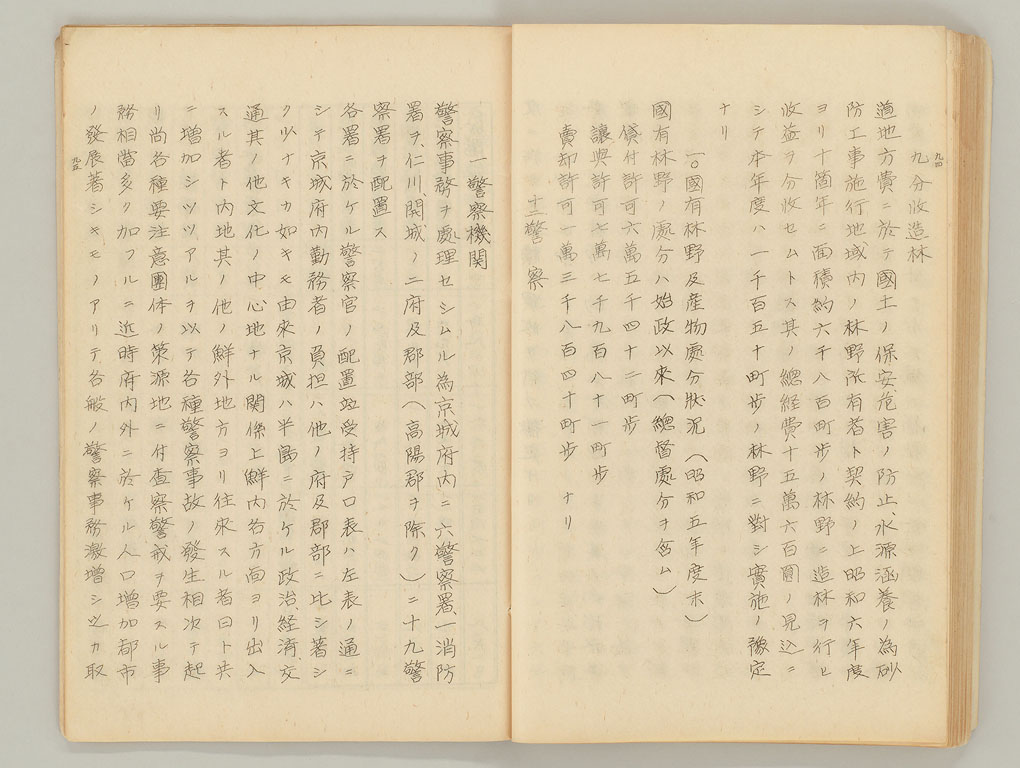 九四
九 分收造林
道地方費ニ於テ國土ノ保安危害ノ防止、水源涵養ノ為砂
防工事施行地域内ノ林野所有者ト契約ノ上昭和六年度
ヨリ十箇年ニ面積約六千八百町歩ノ林野ニ造林ヲ行ヒ
收益ヲ分收セムトス其ノ總経費十五萬六百圓ノ見込ニ
シテ本年度ハ一千百五十町歩ノ林野ニ對シ實施ノ豫定
ナリ
一〇國有林野及産物處分狀況(昭和五年度末)
國有林野ノ處分ハ始政以來(總督處分ヲ含ム)
貸付許可六萬五千四十二町歩
讓與許可七萬七千九百八十一町歩
賣却許可一萬三千八百四十町歩ナリ
十二警察
一 警察機関
警察事務ヲ處理セシムル為京城府内ニ六警察署一消防
署ヲ、仁川、開城ノ二府及郡部(高陽郡ヲ除ク)ニ十九警
察署ヲ配置ス
各署ニ於ケル警察官ノ配置並受持戸口表ハ左表ノ通ニ
シテ京城府内勤務者ノ負担ハ他ノ府及郡部ニ比シ著シ
ク少ナキカ如キモ由來京城ハ半島ニ於ケル政治、経済、交
通其ノ他文化ノ中心地ナル関係上鮮内各方面ヨリ出入
スル者ト内地其ノ他ノ鮮外地方ヨリ往來スル者日ト共
ニ増加シツツアルヲ以テ各種警察事故ノ發生相次テ起
リ尚各種要注意團体ノ策源地ニ付査察警戒ヲ要スル事
務相當多ク加フルニ近時府内外ニ於ケル人口増加都市
ノ發展著シキモノアリテ各般ノ警察事務激増シ之カ取
九五